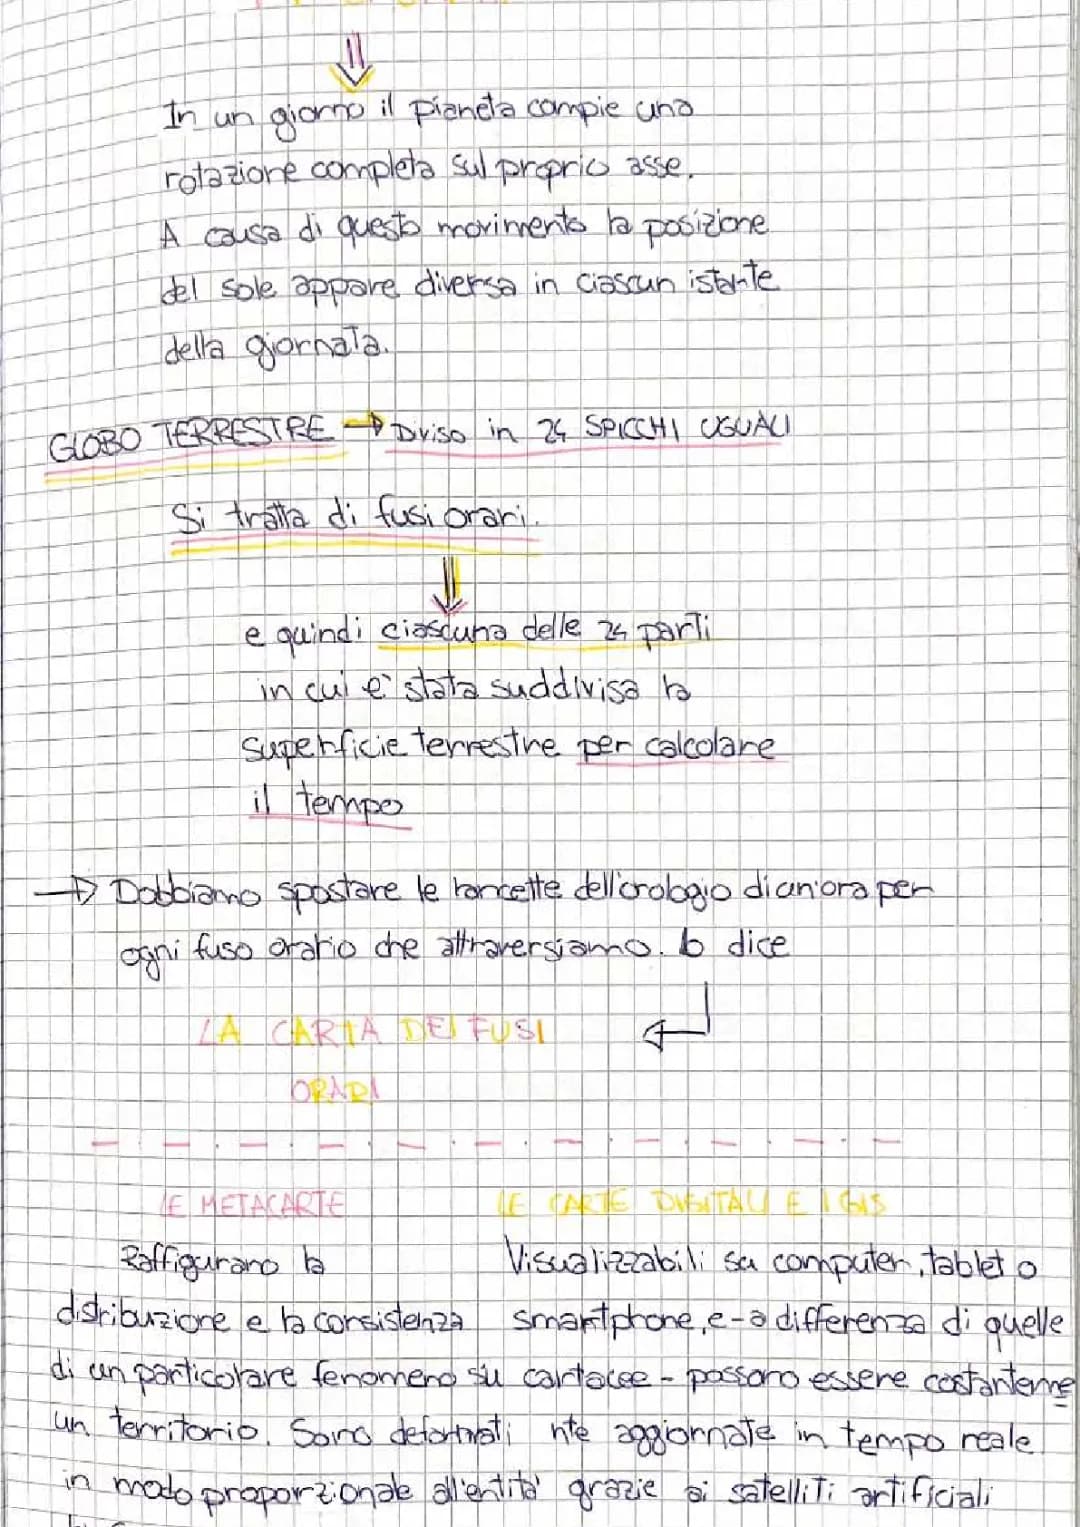 In un giorno il pianeta compie una
rotazione completa sul proprio asse.
A causa di questo movimento la posizione
del sole appare diversa in ciascun istante
della giornata.
GLOBO TERRESTRE → Diviso in 24 SPICCHI UGUALI
Si tratta di fusi orari.
e quindi ciascuna delle 24 parti
in cui è stata suddivisa la
superficie terrestre per calcolare
il tempo
→ Dobbiamo spostare le lancette dell'orologio di un'ora per
ogni fuso orario che attraversiamo. Lo dice
LA CARTA DEI FUSI
ORARI
LE METACARTE
Raffigurano la
distribuzione e la consistenza
di un particolare fenomeno su
un territorio. Sono deformati
in modo proporzionale all'entità
LE CARTE DIGITALI E I GIS
Visualizzabili su computer, tablet o
smartphone, e - a differenza di quelle
cartacee - possono essere costanteme
nte aggiornate in tempo reale
grazie ai satelliti artificiali